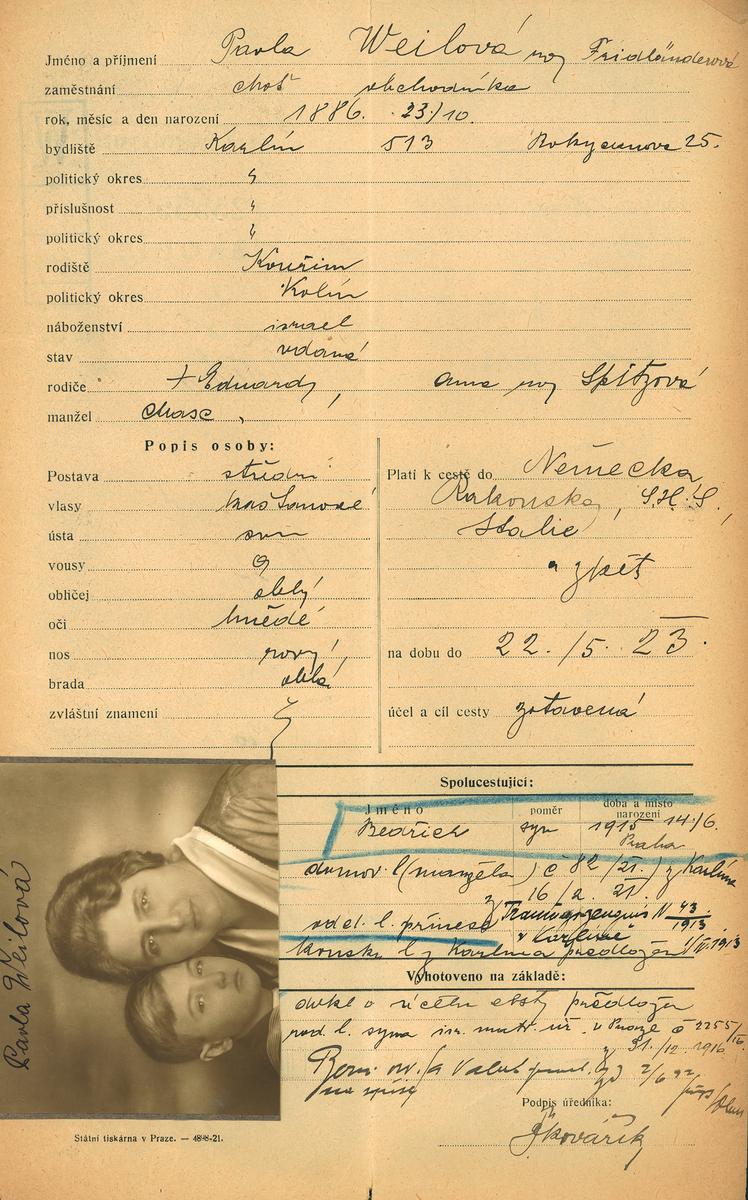 Jméno a příjmení Pavla Weilová roz Fridländerová
zaměstnání choť obchodníka
rok, měsíc a den narození 1886. 23/10.
bydliště Karlín 513 Rokycanova 25.
politický okres "
příslušnost "
politický okres "
rodiště Kouřim
politický okres Kolín
náboženství israel
stav vdaná
rodiče + Eduard, Anna roz Spitzová
manžel
Popis osoby:
Postava střední
vlasy kaštanové
ústa
vousy
obličej oblý
oči hnědé
nos rovný
brada oblá
zvláštní znamení
Platí k cestě do Německa
Rakouska, S.H.S.,
Italie
a zpět
na dobu do 22./5. 23.
účel a cíl cesty zotavená
Spolucestující:
Jméno poměr doba a místo narození
Bedřich syn 1915 14./6.
Praha
domov. l. (manžela) č 82/21. z Karlína
z 16/2. 21.
oddel. l. přinese Trauungszeugnis N 43/1913
v Karlíně
l. z Karlína předložen 1913
Vyhotoveno na základě:
o účelu cesty předložen
rod. l. syna isr. matr. úř. v Praze č 2255/
z 31./10 1916
2/6 22
na spisy
Podpis úředníka:
Kovařík
Pavla Weilová
Státní tiskárna v Praze. — 48-21.